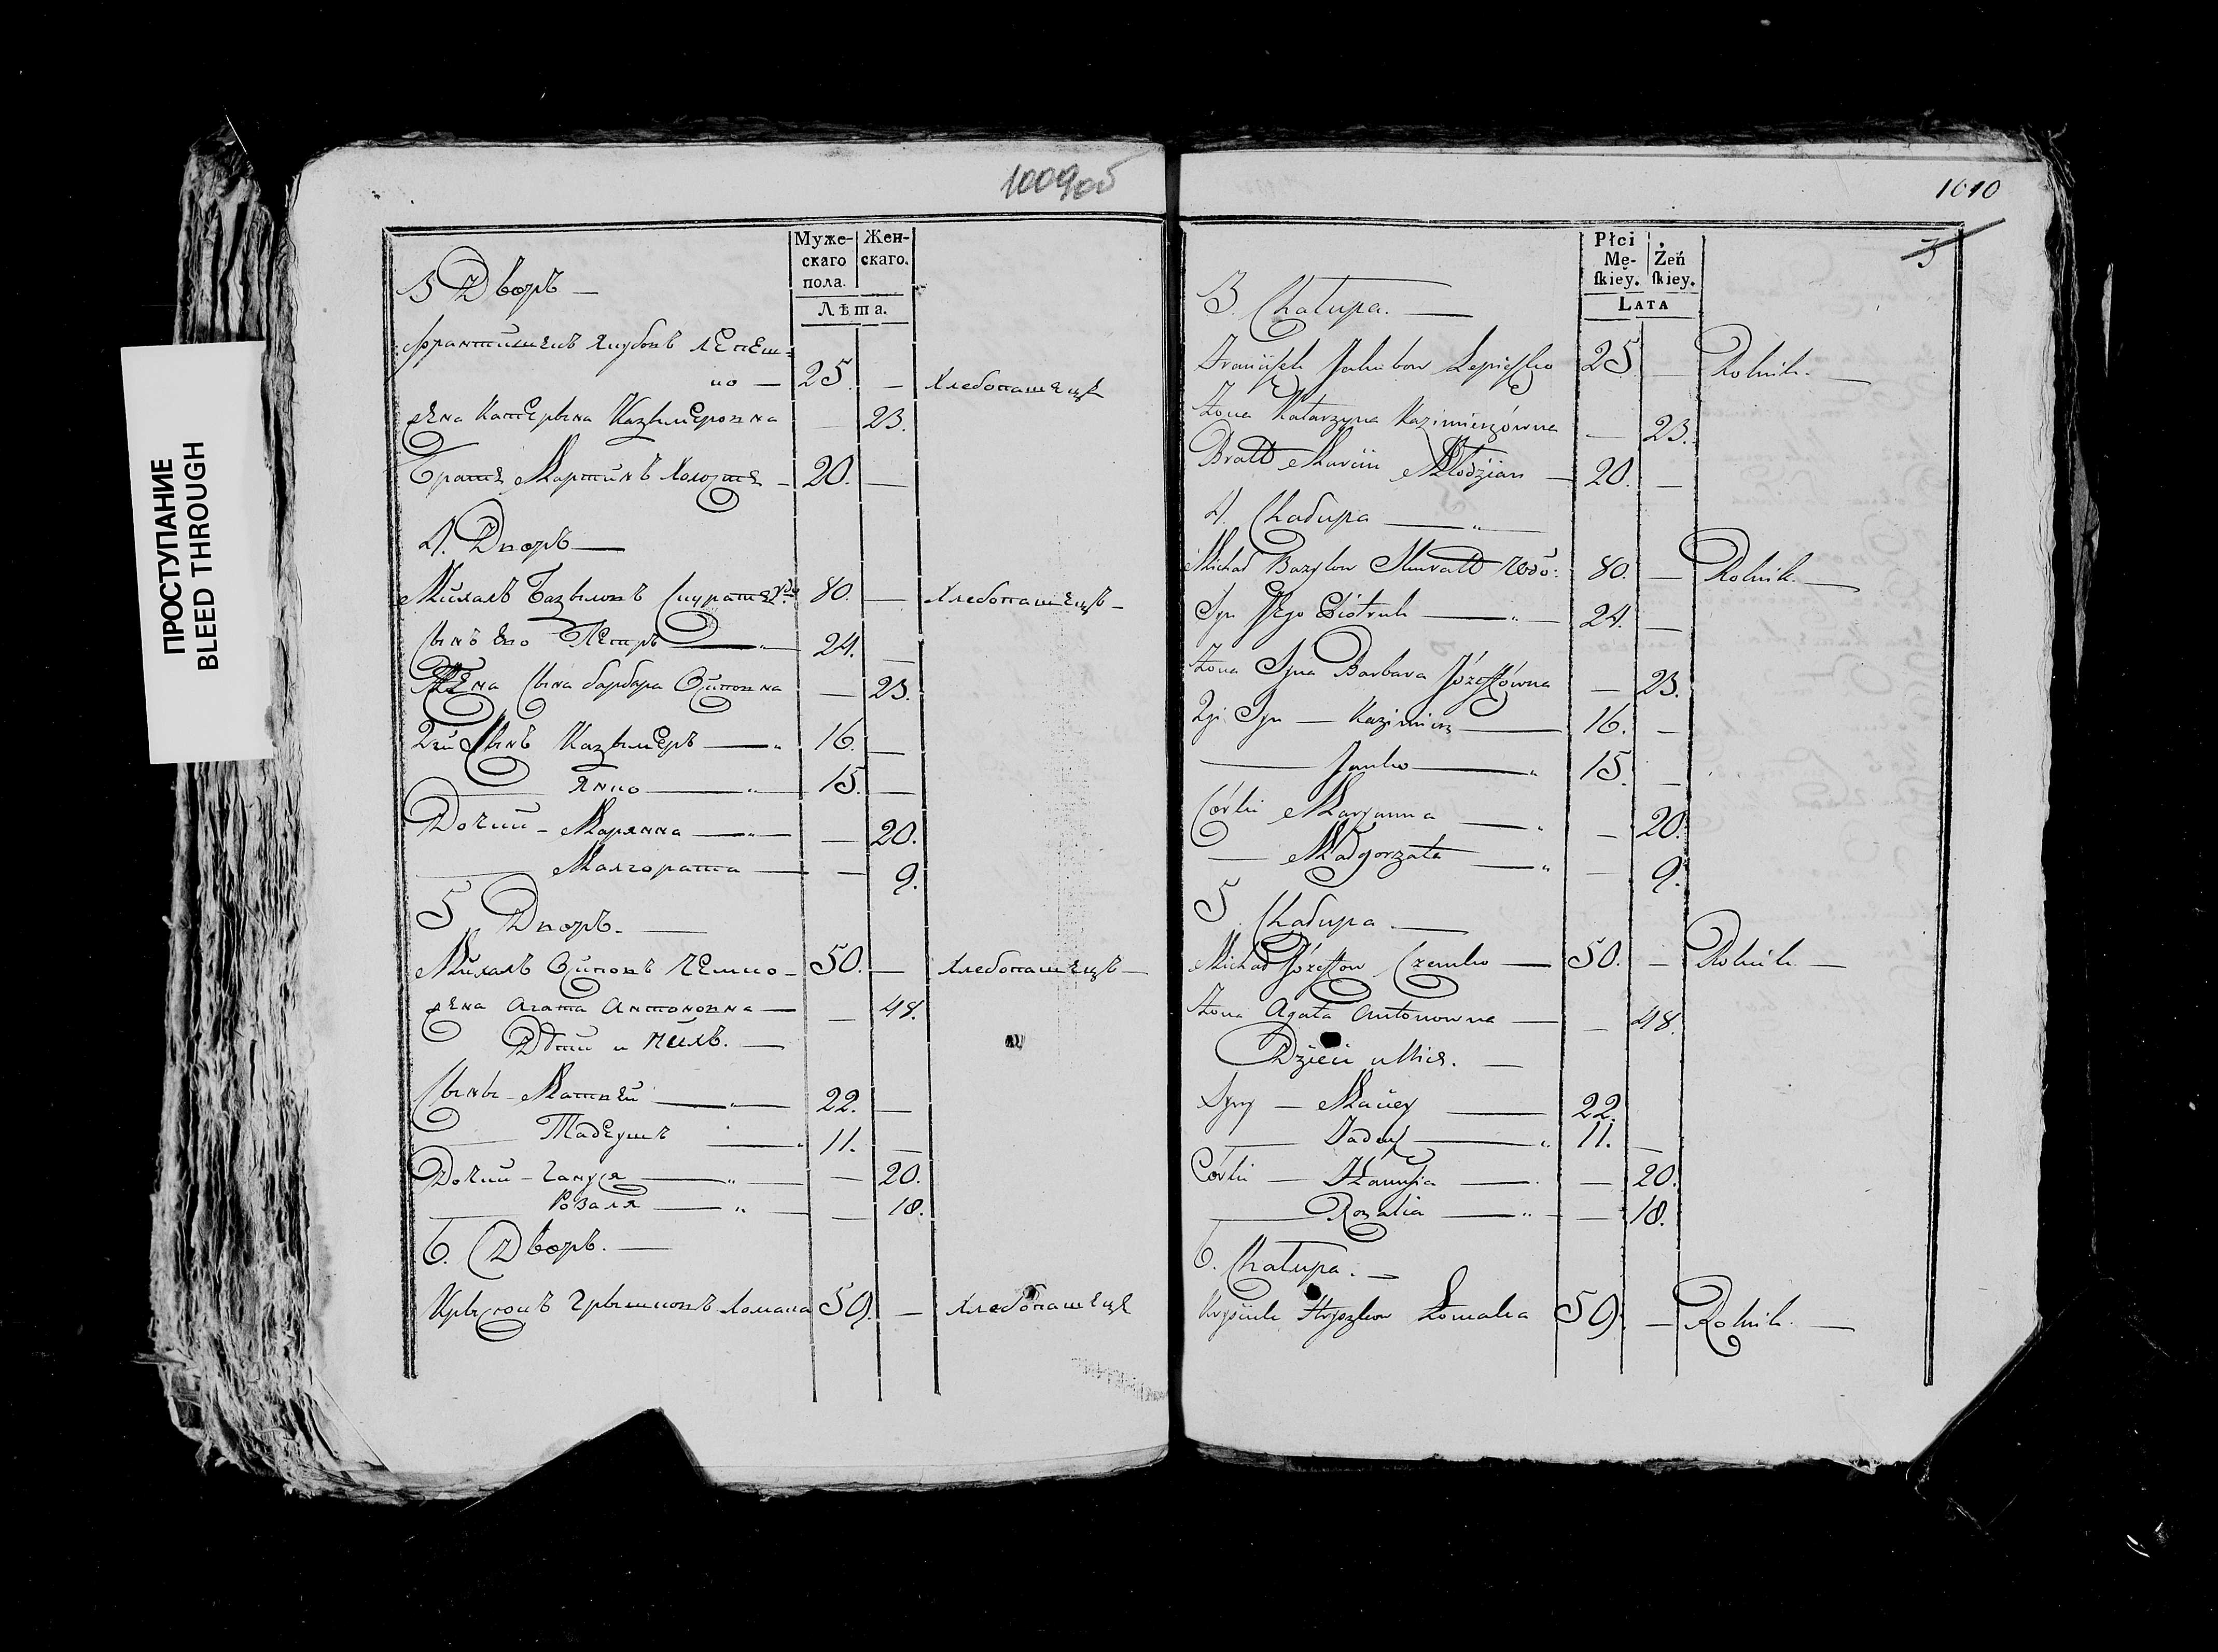 ПРОСТУПАНИЕ
BLEED THROUGH
1009об
Муже-
скаго
пола.
Жен-
скаго.
Лѣта.
3 Дворъ —
Францишекъ Якубовъ Лепеш-
ко — 25. — Хлебопашецъ
Жена Катерына Казымеровна — 23.
Братъ Мартинъ Холостъ — 20. —
4. Дворъ —
Михалъ Базылювъ Скуратъ 80. — Хлебопашецъ —
Сынъ Его Петръ — 24. —
Жена Сына барбара Осиповна — 23.
2гй Сынъ Казымеръ — 16. —
— Янко — 15. —
Дочки — Марянна — 20.
— Малгората — 9.
5 Дворъ. —
Михалъ Осиповъ Чемко — 50. — Хлебопашецъ —
Жена Агата Антоновна — 48.
Дѣти и нихъ. —
Сыны — Матвей — 22. —
— Тадеушъ — 11. —
Дочки — Гануся — 20.
— Розаля — 18.
6. Дворъ. —
Крысюкъ Грышковъ Ломака 59. — Хлебопашецъ
1010
3
Płci
Mę-
ſkiey.
Żeń
ſkiey.
LATA
3. Chałupa. —
Franciszek Jakubow Lepieszko 25 — Rolnik. —
Żona Katarzyna Kazimierzówna — 23.
Bratt Marcin Młodzian — 20. —
4. Chałupa —
Michał Bazylow Skuratt Wdo: 80. — Rolnik. —
Syn Jego Piotruk — 24. —
Żona Syna Barbara Józefówna — 23.
2gi Syn — Kazimierz — 16. —
— Janko — 15. —
Córki Maryanna — 20.
— Małgorzata — 9.
5 Chałupa —
Michał Józefow Czemko — 50. — Rolnik. —
Żona Agata Antonowna — 48.
Dzieci u Nich. —
Syny — Maciey — 22.
— Tadeusz — 11. —
Córki — Hanusia — 20.
— Rozalia — 18.
6. Chałupa. —
Krysiuk Hryszkow Łomaka 59. — Rolnik. —